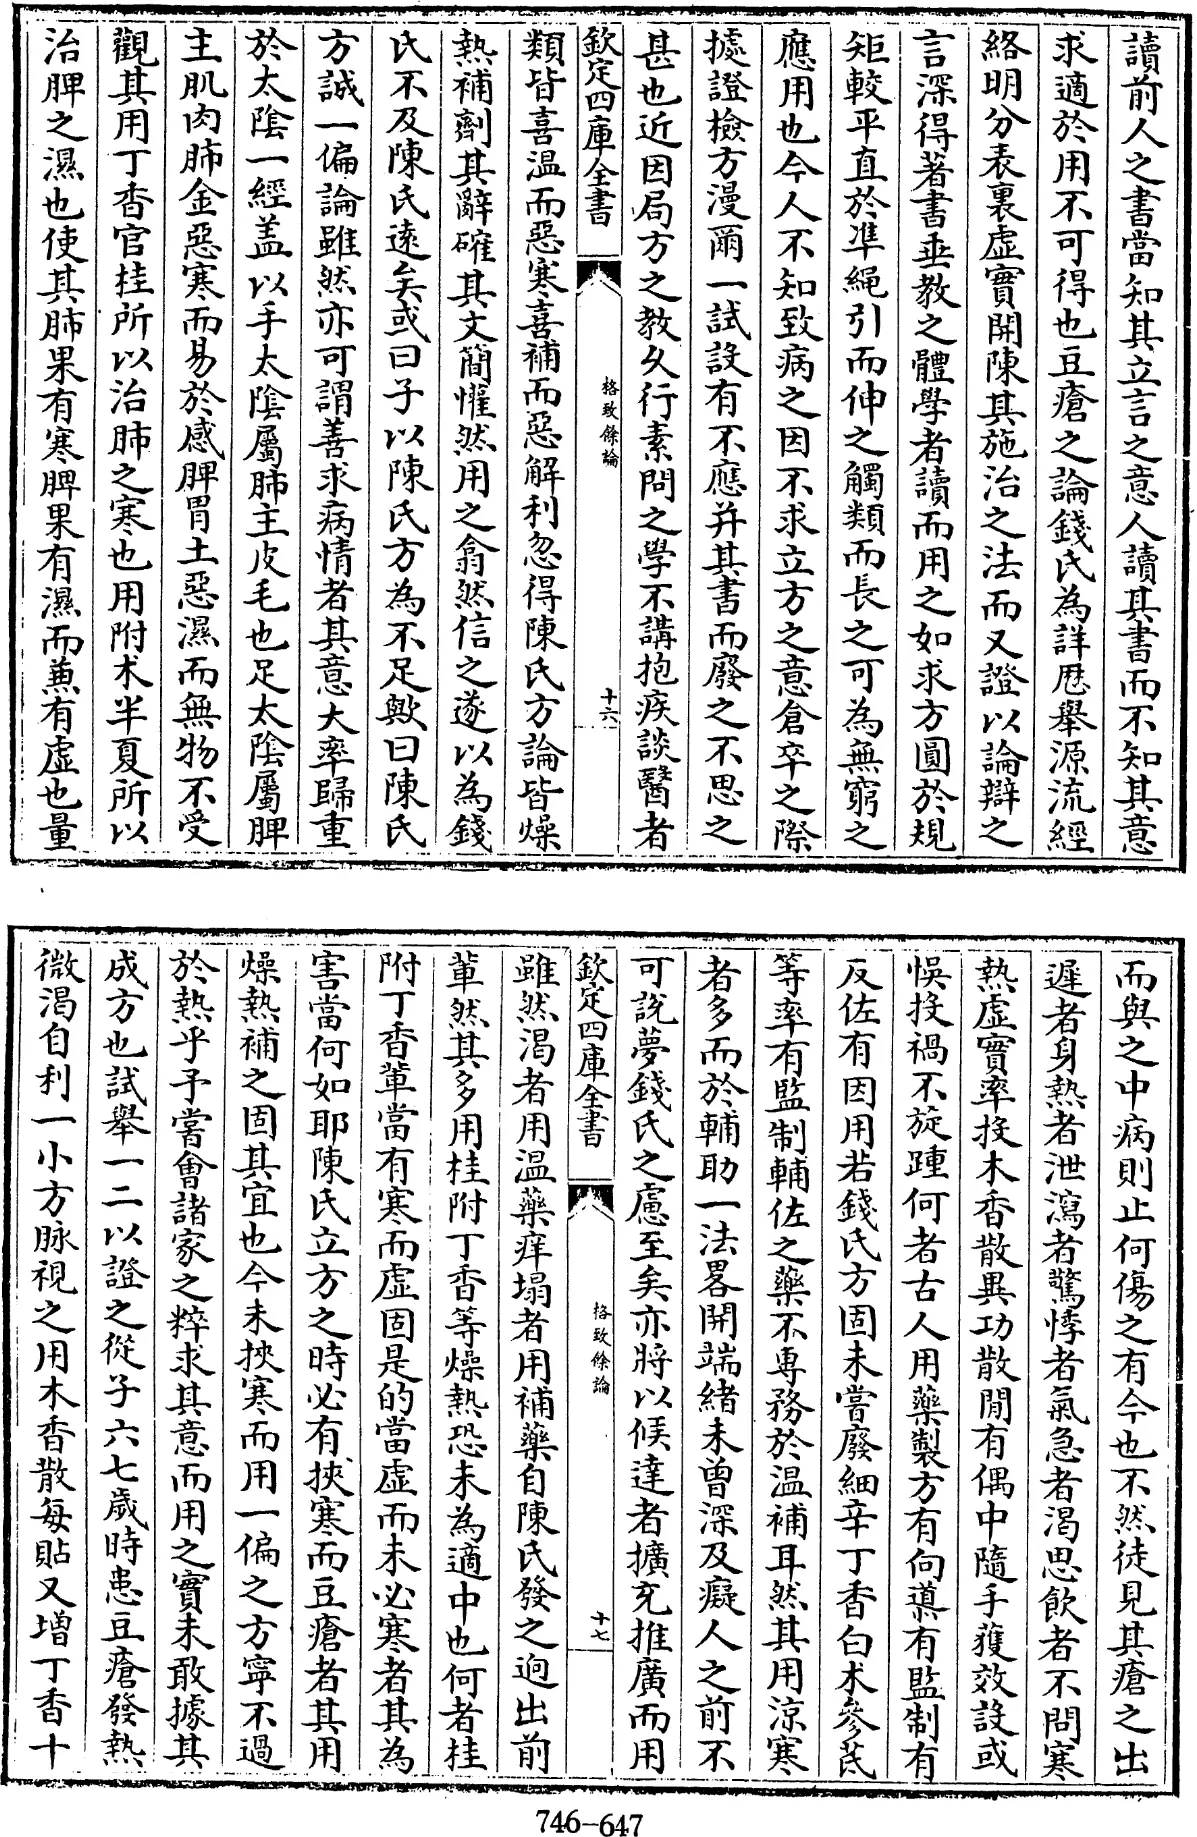 讀前人之書當知其立言之意人讀其書而不知其意
求適於用不可得也豆瘡之論錢氏為詳厯舉源流經
絡明分表裏虛實開陳其施治之法而又證以論辯之
言深得著書垂教之體學者讀而用之如求方圓於規
矩較平直於準繩引而伸之觸類而長之可為無窮之
應用也今人不知致病之因不求立方之意倉卒之際
據證檢方漫爾一試設有不應并其書而廢之不思之
甚也近因局方之教久行素問之學不講抱疾談醫者
欽定四庫全書
格致餘論
十六
類皆喜温而惡寒喜補而惡解利忽得陳氏方論皆燥
熱補劑其辭確其文簡懽然用之翕然信之遂以為錢
氏不及陳氏逺矣或曰子以陳氏方為不足歟曰陳氏
方誠一偏論雖然亦可謂善求病情者其意大率歸重
於太陰一經盖以手太陰屬肺主皮毛也足太陰屬脾
主肌肉肺金惡寒而易於感脾胃土惡濕而無物不受
觀其用丁香官桂所以治肺之寒也用附术半夏所以
治脾之濕也使其肺果有寒脾果有濕而兼有虛也量
而與之中病則止何傷之有今也不然徒見其瘡之出
遲者身熱者泄瀉者驚悸者氣急者渴思飲者不問寒
熱虛實率投木香散異功散間有偶中隨手獲效設或
悞投禍不旋踵何者古人用藥製方有向導有監制有
反佐有因用若錢氏方固未嘗廢細辛丁香白术參芪
等率有監制輔佐之藥不専務於温補耳然其用涼寒
者多而於輔助一法畧開端緒未曾深及癡人之前不
可說夢錢氏之慮至矣亦將以候達者擴充推廣而用
欽定四庫全書
格致餘論
十七
雖然渴者用温藥痒塌者用補藥自陳氏發之迥出前
輩然其多用桂附丁香等燥熱恐未為適中也何者桂
附丁香輩當有寒而虛固是的當虛而未必寒者其為
害當何如耶陳氏立方之時必有挾寒而豆瘡者其用
燥熱補之固其宜也今未挾寒而用一偏之方寧不過
於熱乎予嘗會諸家之粹求其意而用之實未敢據其
成方也試舉一二以證之從子六七歲時患豆瘡發熱
微渴自利一小方脉視之用木香散每貼又增丁香十
746-647